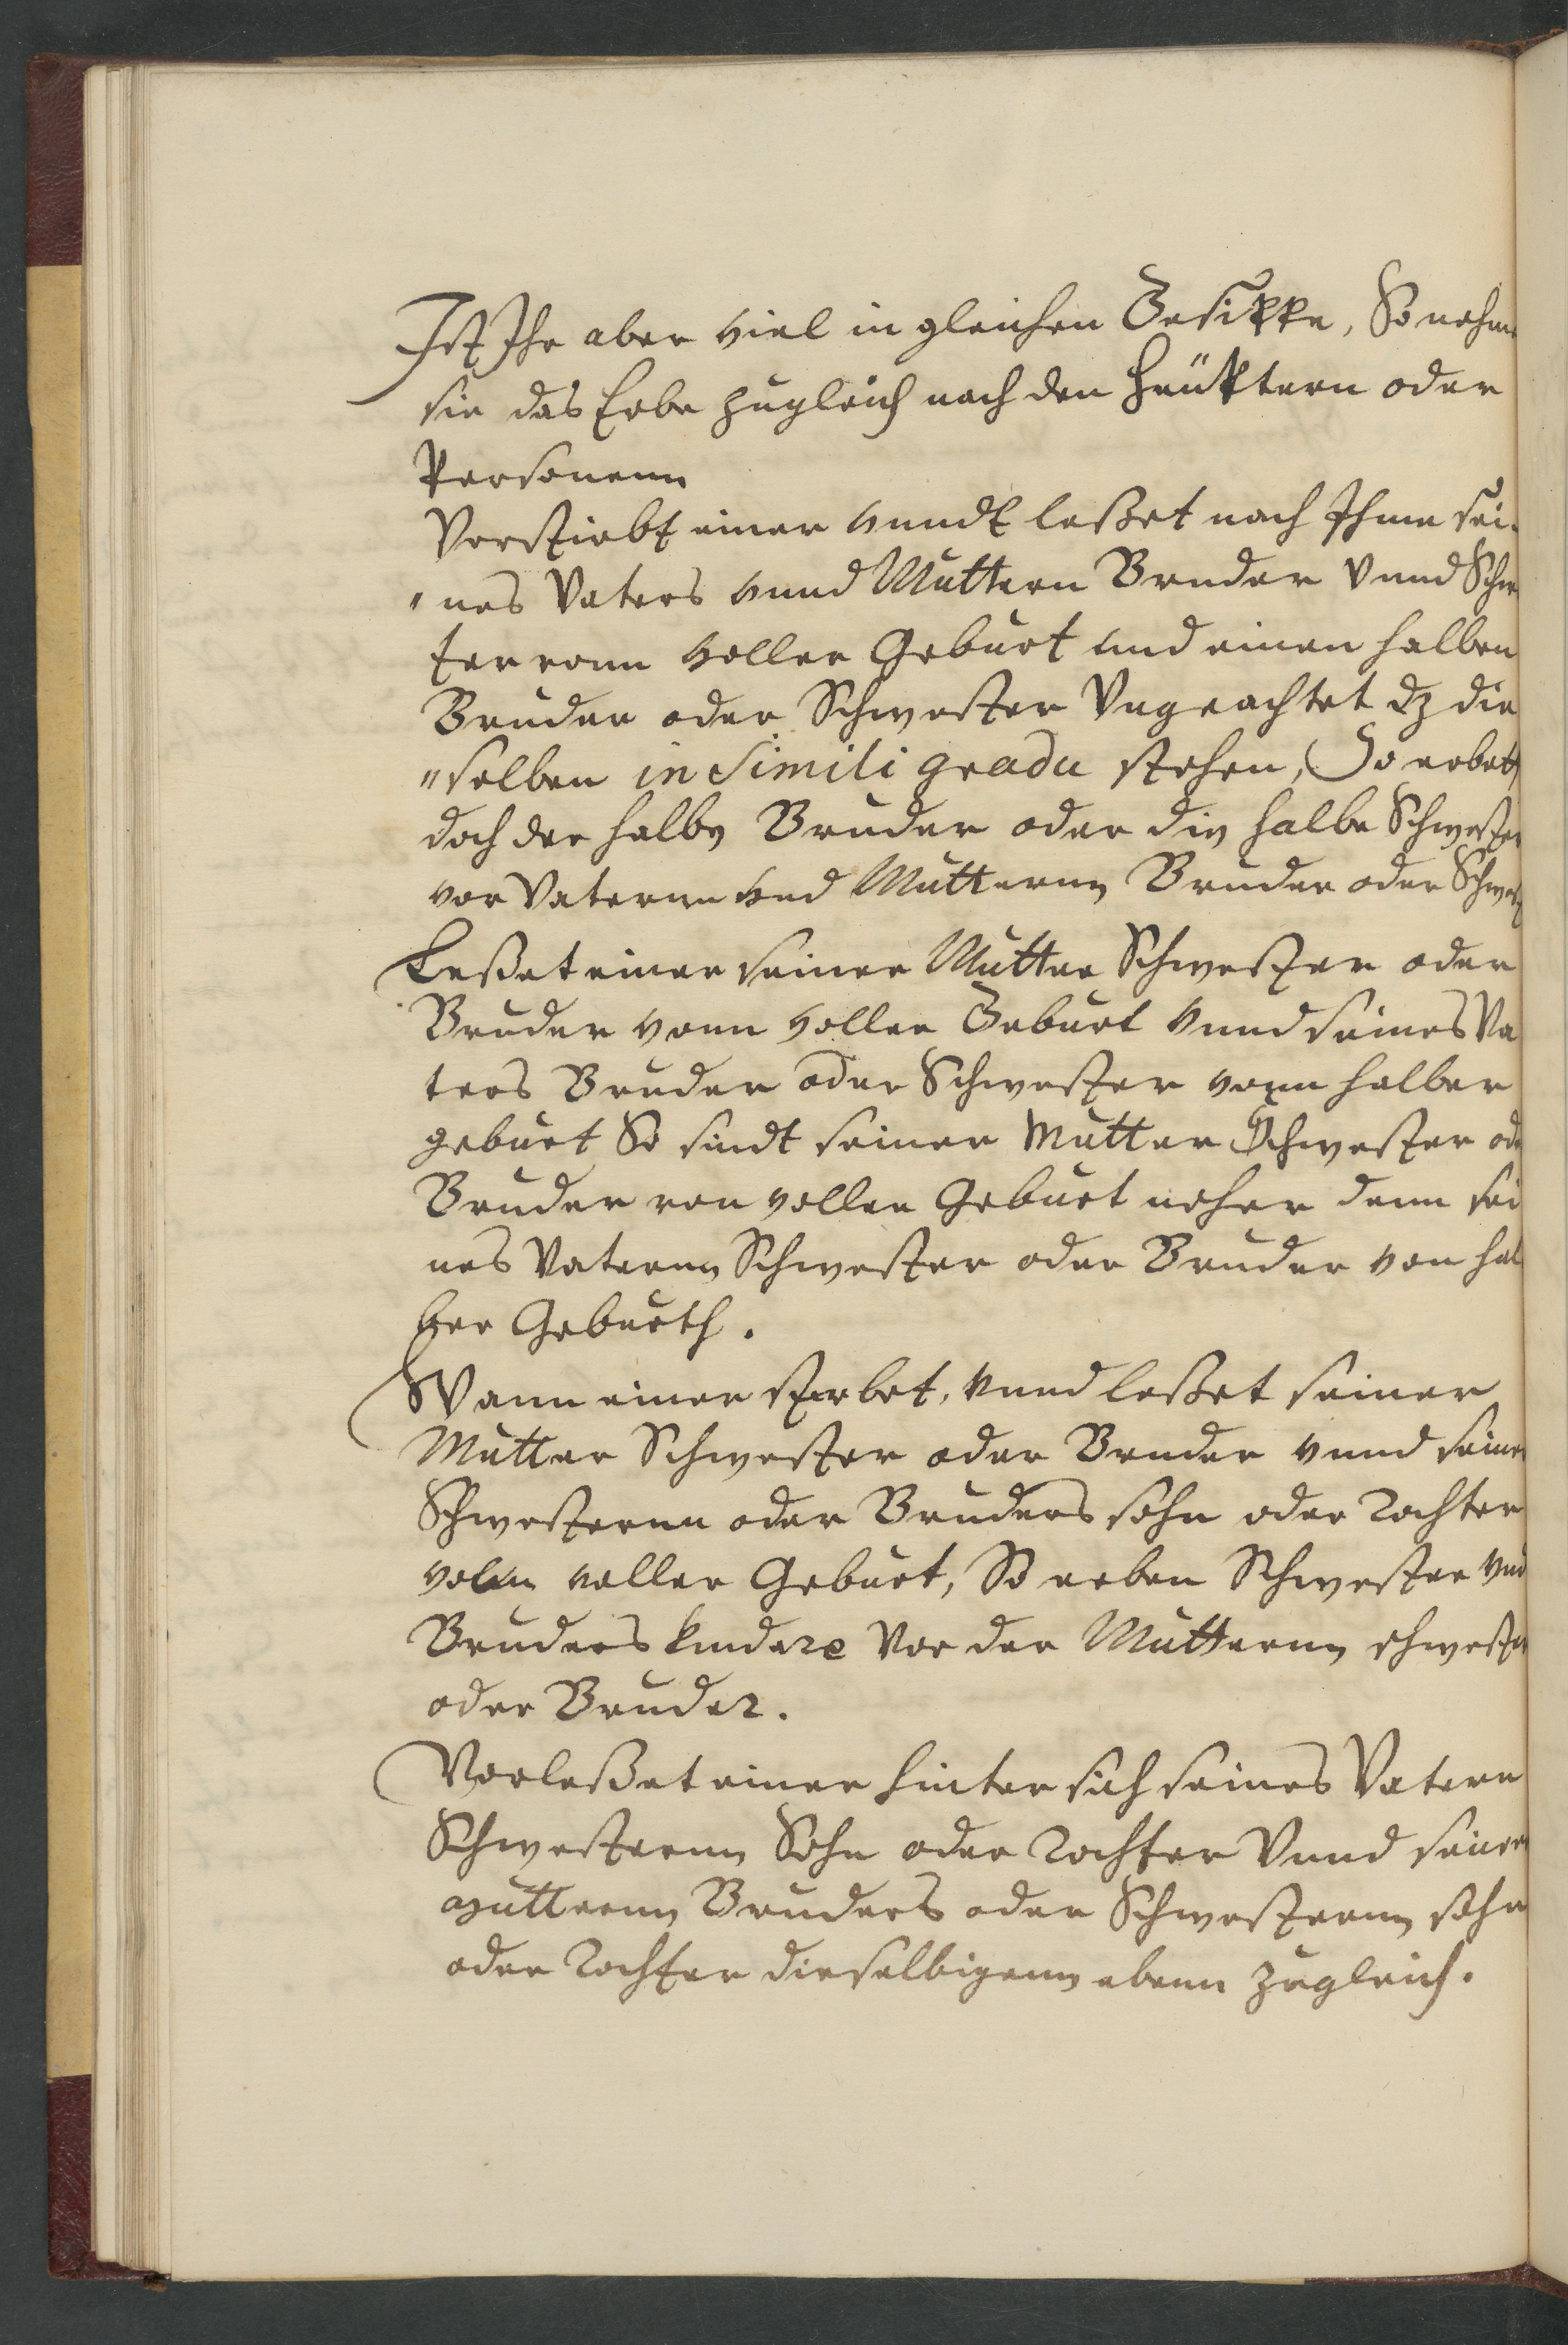 Ist Ihr aber viel in gleichen Gesippe, So nehm
sie das Erbe zugleich nach den Heüptern oder
Personenn
Verstirbt einer vnndt leßet nach Ihme sei-
"nes Vaters vnnd Muttern Bruder Vnnd Schw
ter vonn voller Geburt vnd einen halben
Bruder oder Schwester Vngeachtet dz die
"selben in simili gradu stehen, So erbett
doch der halby Bruder oder diy halbe Schwester
vor Vaternn vnd Mutternn Bruder oder Schwest
Leßet einer seiner Mutter Schwester oder
Bruder vonn voller Geburt vnnd seines Va
ters Bruder oder Schwester vonn halber
geburt So sindt seiner Mutter Schwester ode
Bruder von voller Geburt neher denn sei
nes Vaternn Schwester oder Bruder von hal
ber Geburth.
Wann einer sterbet, vnnd leßet seiner
Mutter Schwester oder Bruder vnnd seiner
Schwesternn oder Bruders sohn oder Tochter
voller Geburt, So erben Schwester vnd
Bruders kindere Vor der Mutternn schwester
oder Bruder.
Verleßet einer hinter sich seines Vatern
Schwesternn Sohn oder Tochter Vnnd seiner
Mutternn Bruders oder Schwesternn sohn
oder Tochter dieselbigenn ebenn zugleich.